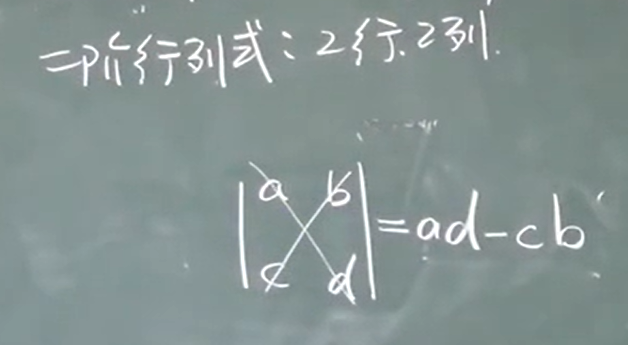 二阶行列式：2行.2列.
|a b|
|c d| = ad-cb